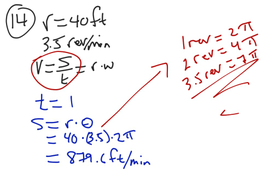 14 r = 40ft
3.5 rev/min
V = S/t = r·w
t = 1
S = r·Θ
= 40·(3.5)·2π
= 879.6 ft/min
1 rev = 2π
2 rev = 4π
3.5 rev = 7π